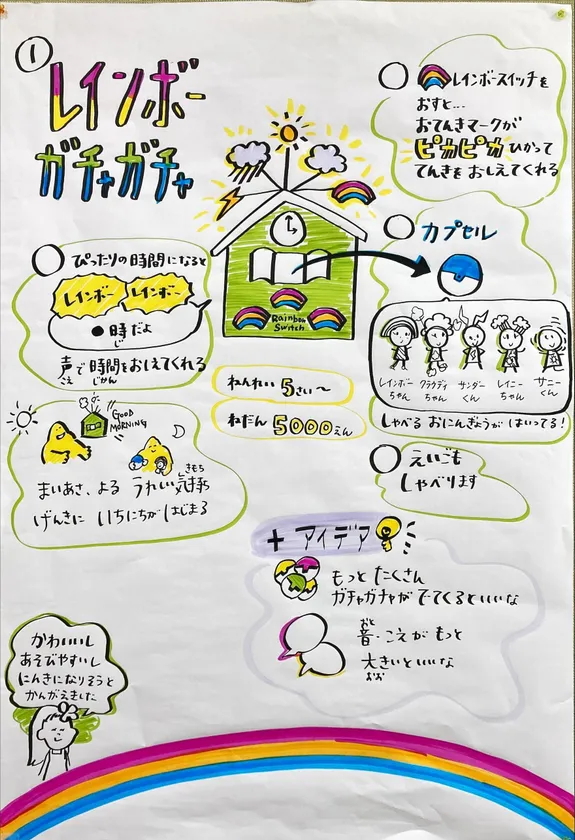 ①
レインボー
ガチャガチャ
レインボースイッチを
おすと…
おてんきマークが
ピカピカ ひかって
てんきを おしえてくれる
ぴったりの時間になると
レインボー レインボー
●時だよ
じ
声で時間をおしえてくれる
こえ じかん
Rainbow
Switch
カプセル
レインボー
ちゃん
クラウディ
ちゃん
サンダー
くん
レイニー
ちゃん
サニー
くん
しゃべる おにんぎょうが はいってる!
ねんれい 5さい〜
ねだん 5000えん
GOOD
MORNING
まいあさ、よる うれしい気持ち
きもち
げんきに いちにちがはじまる
えいごも
しゃべります
+ アイデア
もっと たくさん
ガチャガチャが でてくるといいな
おと
音・こえが もっと
大きいといいな
おお
かわいいし
あそびやすいし
にんきになりそうと
かんがえました